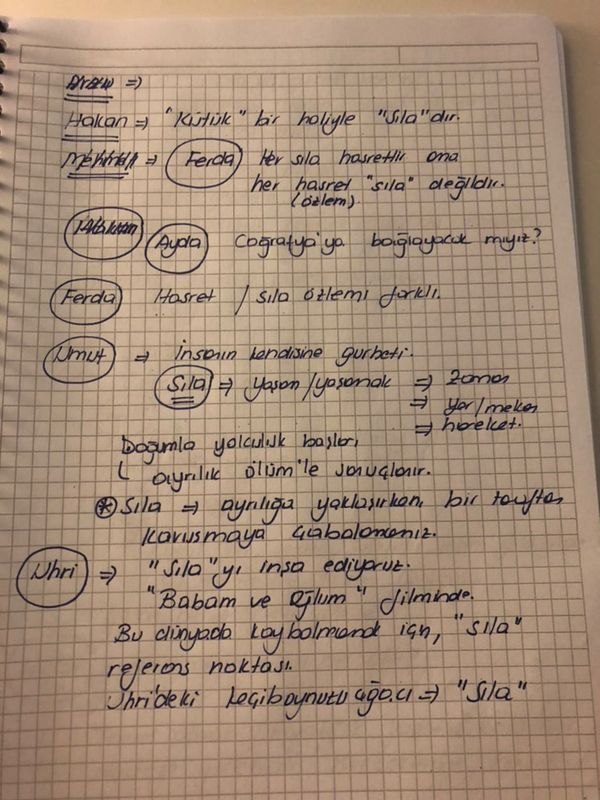 ⇒
Hakan ⇒ "Kütük" bir haliyle "Sıla"dır.
⇒ Ferda Her sıla hasrettir ama
her hasret "sıla" değildir.
(özlem).
Ayda Coğrafya'ya bağlayacak mıyız?
Ferda Hasret / sıla özlemi farklı.
Umut ⇒ İnsanın kendisine gurbeti.
Sıla ⇒ yaşam/yaşamak ⇒ zaman
⇒ yer/mekan
⇒ hareket.
Doğumla yolculuk başlar,
ayrılık ölüm'le sonuçlanır.
* Sıla ⇒ ayrılığa yaklaşırken, bir taraftan
kavuşmaya çabalamamız.
Uhri ⇒ "Sıla"yı inşa ediyoruz.
"Babam ve Oğlum" filminde.
Bu dünyada kaybolmamak için, "sıla"
referans noktası.
Uhri'deki keçiboynuzu ağacı ⇒ "Sıla"